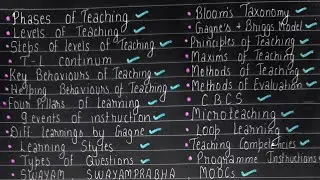 • Phases of Teaching
• Levels of Teaching
• Steps of levels of Teaching
• T-L continum
• Key Behaviours of Teaching
• Helping Behaviours of Teaching
• Four Pillars of Learning
• 9 events of instruction
• Diff. learnings by Gagne
• Learning Styles
• Types of Questions
• SWAYAM SWAYAMPRABHA
• Bloom's Taxonomy
• Gagne's & Briggs Model
• Principles of Teaching
• Maxims of Teaching
• Methods of Teaching
• Methods of Evaluation
C.B.C.S
• Microteaching
• Loop Learning
• Teaching Competencies
• Programme Instructions
• MOOCs